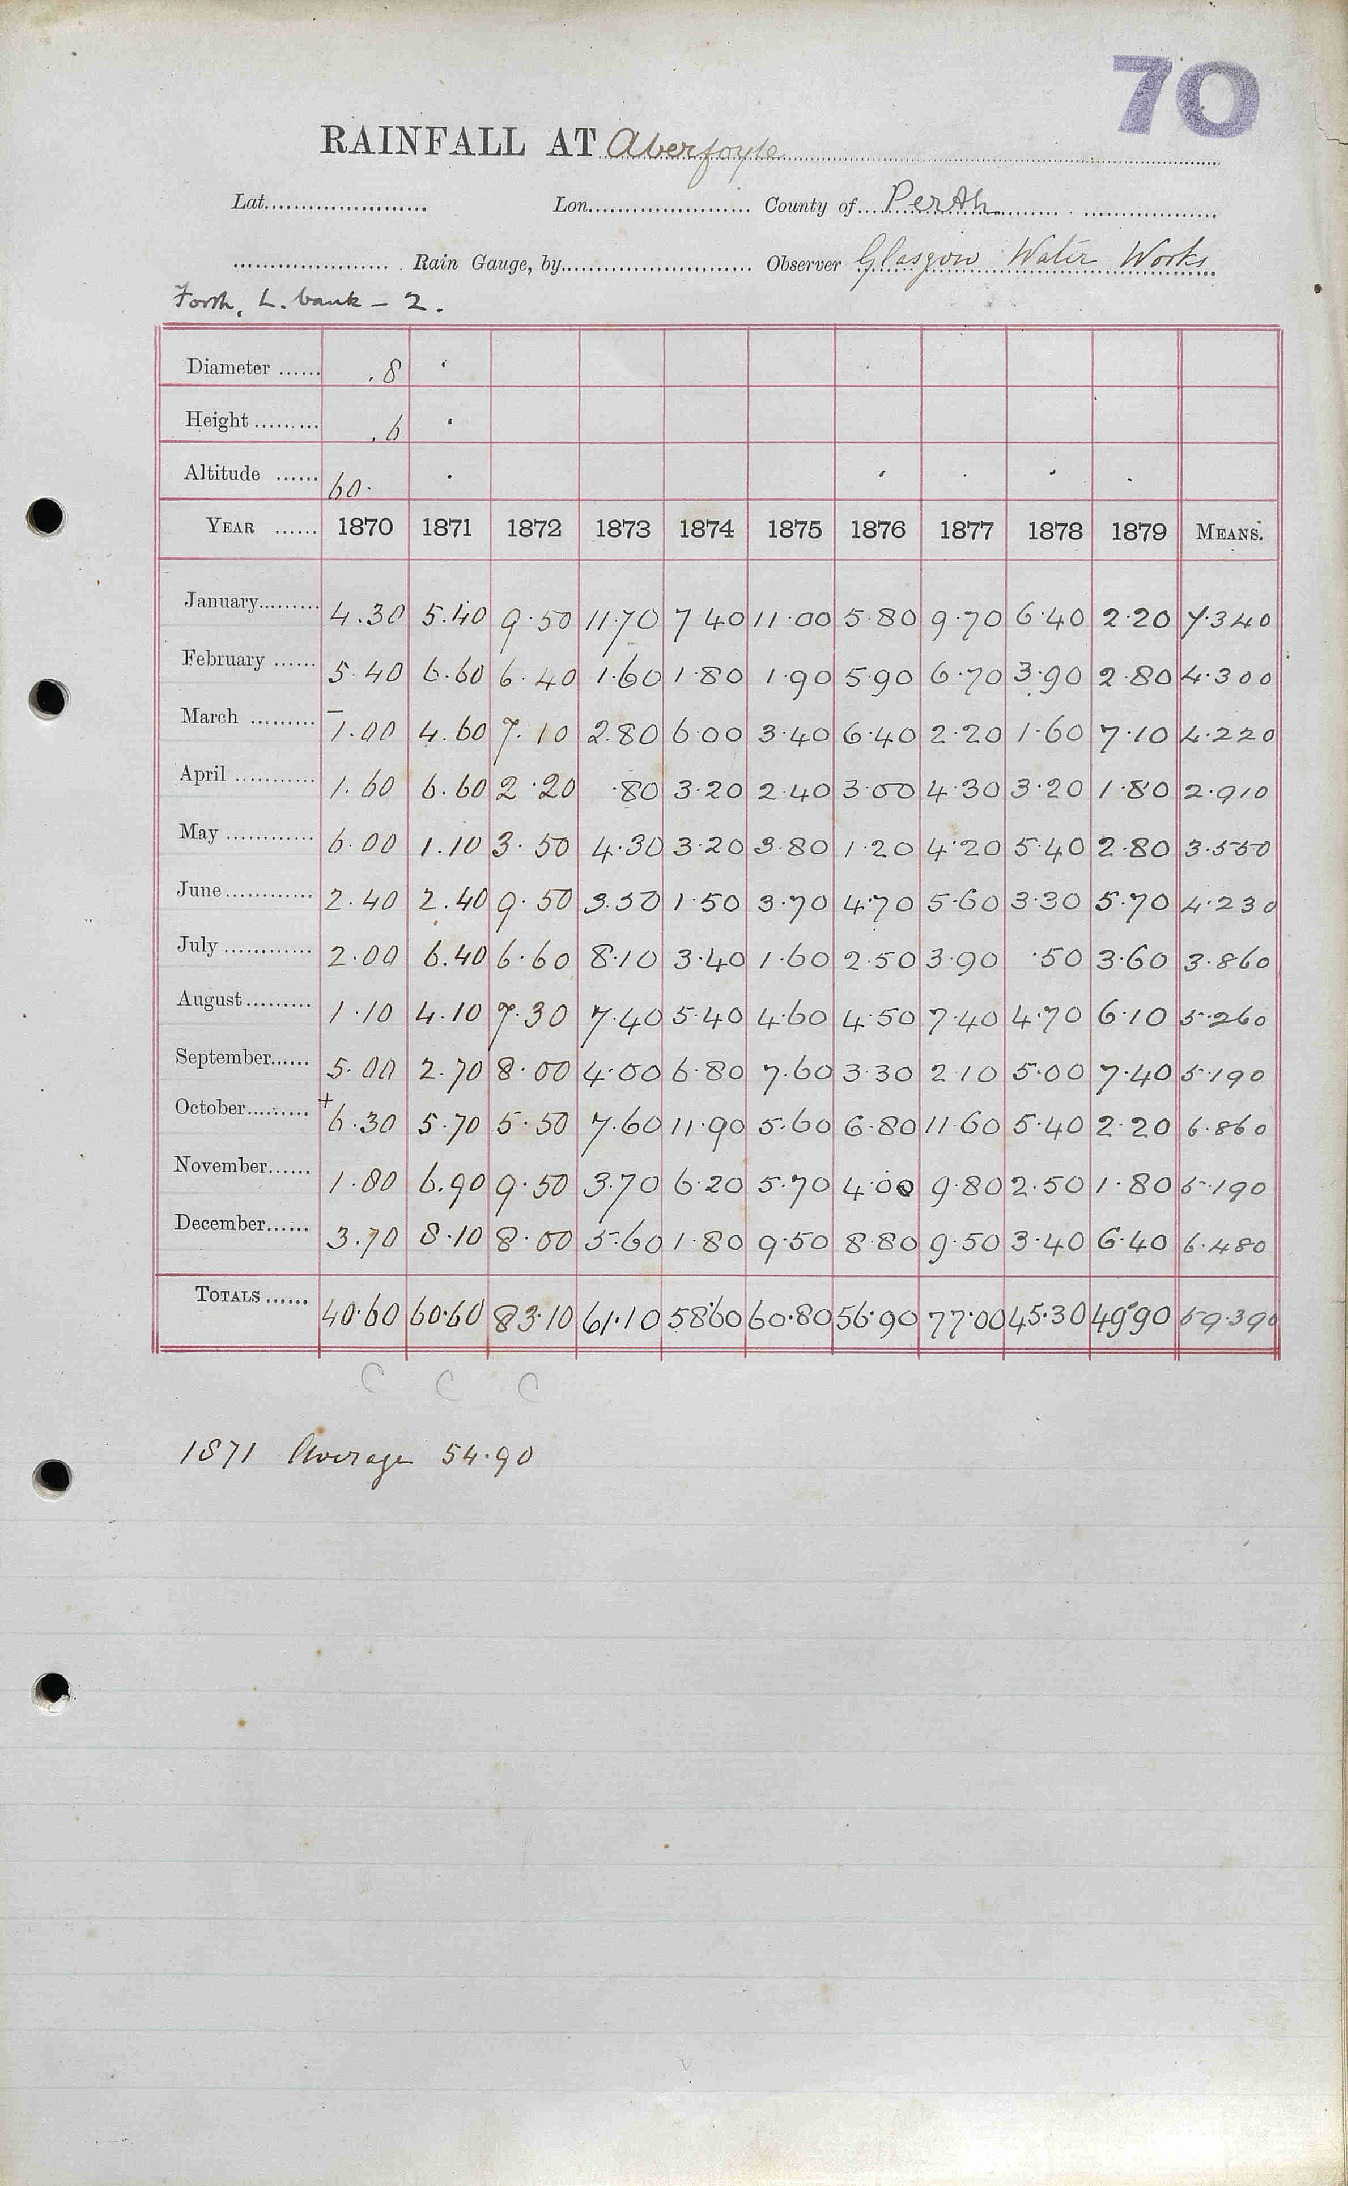 70
RAINFALL AT Aberfoyle
Lat. Lon. County of Perth
Rain Gauge, by Observer Glasgow Water Works
Forth, L. bank – 2.
Diameter ...... .8
Height ......... .6
Altitude ...... 60.
YEAR ...... 1870 1871 1872 1873 1874 1875 1876 1877 1878 1879 MEANS.
January......... 4.30 5.40 9.50 11.70 7.40 11.00 5.80 9.70 6.40 2.20 7.340
February ...... 5.40 6.60 6.40 1.60 1.80 1.90 5.90 6.70 3.90 2.80 4.300
March ......... 1.00 4.60 7.10 2.80 6.00 3.40 6.40 2.20 1.60 7.10 4.220
April ............ 1.60 6.60 2.20 .80 3.20 2.40 3.00 4.30 3.20 1.80 2.910
May ............ 6.00 1.10 3.50 4.30 3.20 3.80 1.20 4.20 5.40 2.80 3.550
June ............ 2.40 2.40 9.50 3.50 1.50 3.70 4.70 5.60 3.30 5.70 4.230
July ............ 2.00 6.40 6.60 8.10 3.40 1.60 2.50 3.90 .50 3.60 3.860
August ......... 1.10 4.10 7.30 7.40 5.40 4.60 4.50 7.40 4.70 6.10 5.260
September...... 5.00 2.70 8.00 4.00 6.80 7.60 3.30 2.10 5.00 7.40 5.190
October......... + 6.30 5.70 5.50 7.60 11.90 5.60 6.80 11.60 5.40 2.20 6.860
November...... 1.80 6.90 9.50 3.70 6.20 5.70 4.00 9.80 2.50 1.80 5.190
December...... 3.70 8.10 8.00 5.60 1.80 9.50 8.80 9.50 3.40 6.40 6.480
TOTALS ...... 40.60 60.60 83.10 61.10 58.60 60.80 56.90 77.00 45.30 49.90 59.390
C C C
1871 Average 54.90